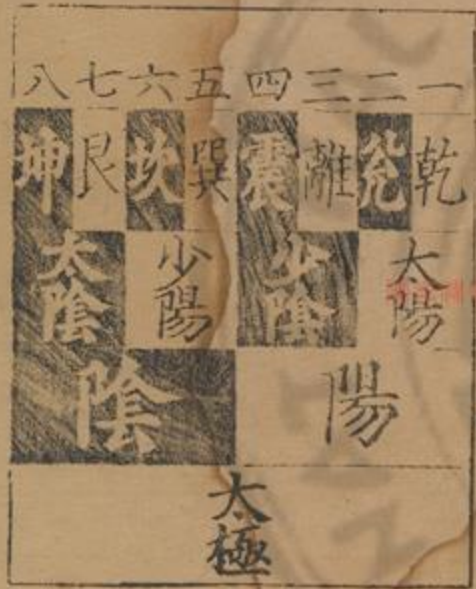 一二三四五六七八
乾兌離震巽坎艮坤
太陽 少陰 少陽 太陰
陽 陰
太極